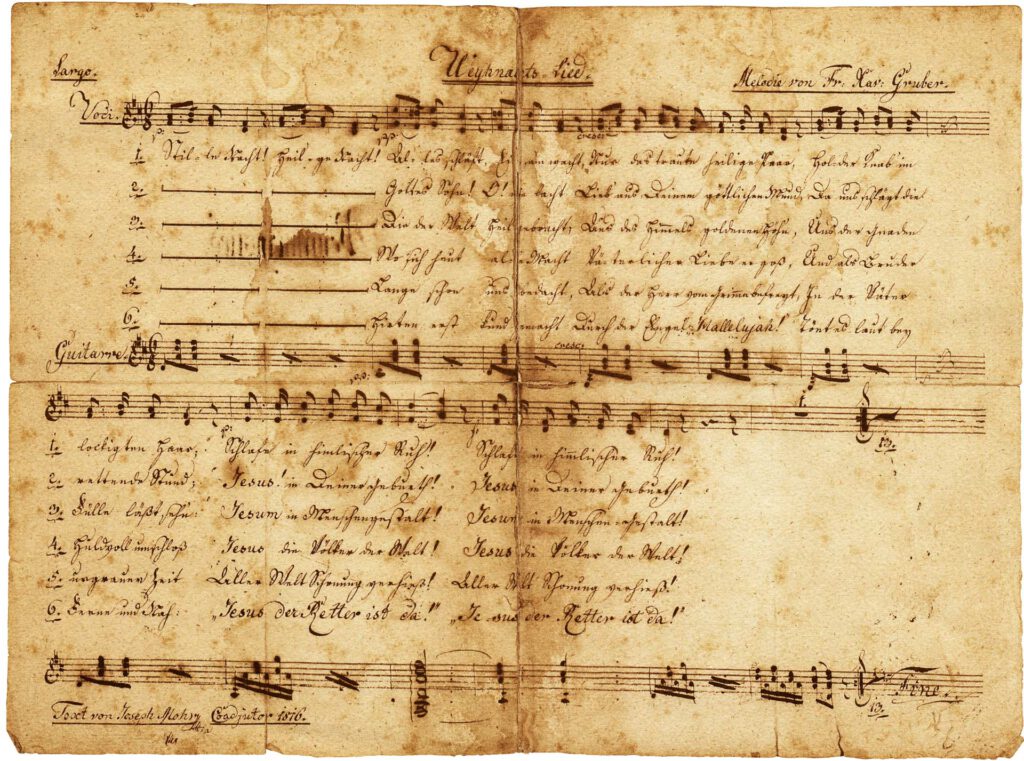 Largo. Weyhnachts-Lied. Melodie von Fr. Xav: Gruber.
Voci.
p. pp. cresc:
1. Stil-le Nacht! Heil-ge Nacht! Al-les schläft, Ein-sam wacht, Nur das traute heilige Paar, Holder Knab' im
2. Gottes Sohn! O! wie lacht Lieb' aus Deinem göttlichen Mund, Da uns schlägt die
3. Die der Welt Heil gebracht, Aus des Himmels goldenen Höhn, Uns der Gnaden
4. Wo sich heut alle Macht Väterlicher Liebe ergoß, Und als Bruder
5. Lange schon uns bedacht, Als der Herr vom Grimme befreyt, In der Väter
6. Hirten erst kund gemacht Durch der Engel Hallelujah! Tönt es laut bey
Guitarre.
cresc:
pp.
p. p.
1. lockigten Haar; Schlafe in himlischer Ruh! Schlafe in himlischer Ruh!
2. rettende Stund; Jesus! in Deiner Geburth! Jesus in Deiner Geburth!
3. Fülle läßt sehn: Jesum in Menschengestalt! Jesum in Menschen-gestalt!
4. Huldvoll umschloß Jesus die Völker der Welt! Jesus die Völker der Welt!
5. urgrauer Zeit Aller Welt Schonung verhieß! Aller Welt Schonung verhieß!
6. Ferne und Nah: „Jesus der Retter ist da!" „Jesus der Retter ist da!"
13.
Fine.
13.
Text von Joseph Mohr Coadjutor 1816.